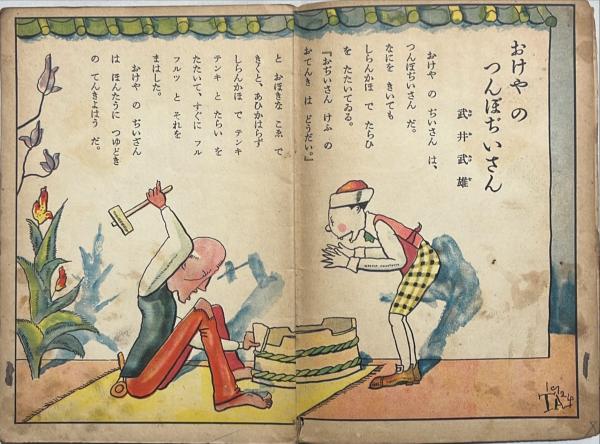 おけや の
つんぼぢいさん
武井武雄
おけや の ぢいさん は、
つんぼぢいさん だ。
なにを きいても
しらんかほ で たらひ
を たたいてゐる。
『おぢいさん けふ の
おてんき は どうだい。』
と おほきな こゑ で
きくと、あひかはらず
しらんかほ で テンキ
テンキ と たらい を
たたいて、すぐに フル
フルツ と それを
まはした。
おけや の ぢいさん
は ほんたうに つゆどき
の てんきよほう だ。
1924